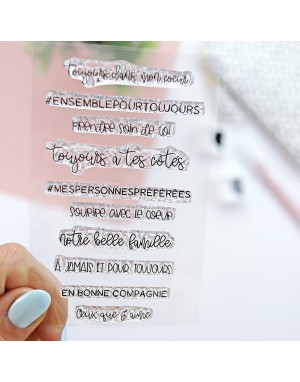 toujours dans mon coeur
#ENSEMBLEPOURTOUJOURS
PRENDRE SOIN DE TOI
toujours à tes côtés
#MESPERSONNESPRÉFÉRÉES
SOURIRE AVEC LE COEUR
notre belle famille
À JAMAIS ET POUR TOUJOURS
EN BONNE COMPAGNIE
Ceux que j'aime